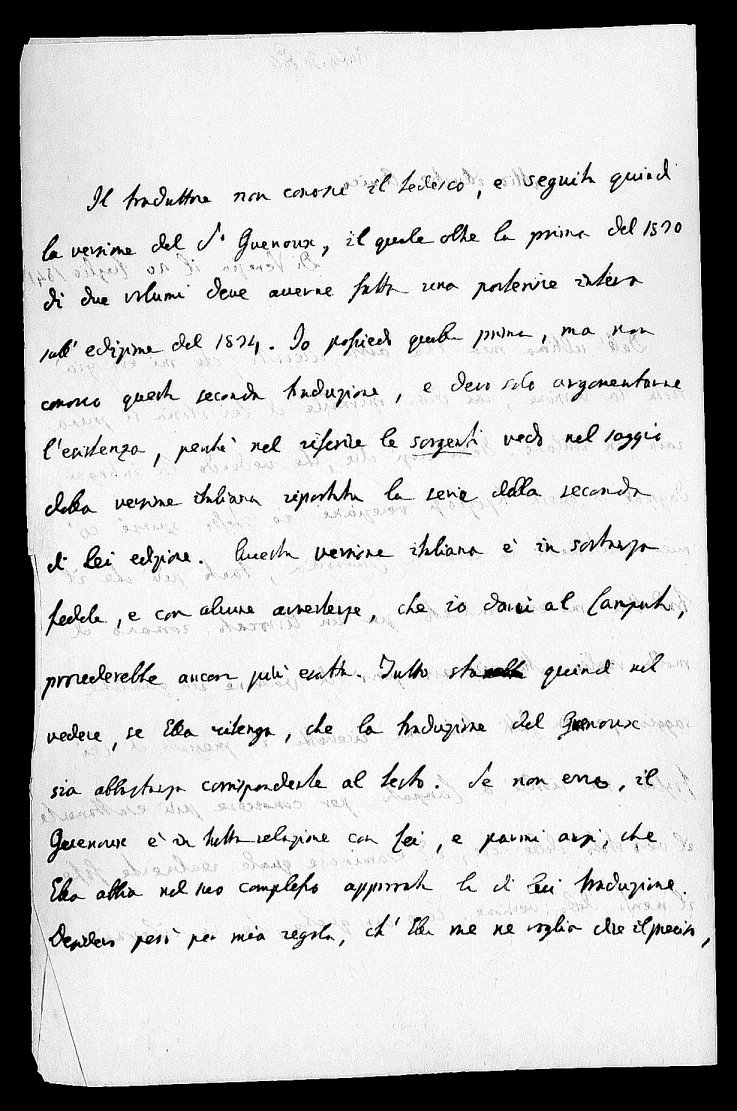 Il traduttore non conosce il tedesco, e seguita quindi
la versione del S.r Guenoux, il quale oltre la prima del 1830
di due volumi deve averne fatta una posteriore intera
sull' edizione del 1834. Io possiedo quella prima, ma non
conosco questa seconda traduzione, e devo solo argomentarne
l'esistenza, perchè nel riferire le sorgenti vedo nel saggio
della versione italiana riportata la serie della seconda
di Lei edizione. Questa versione italiana è in sostanza
fedele, e con alcune avvertenze, che io darei al Campora,
procederebbe ancora più esatta. Tutto sta quindi nel
vedere, se Ella ritenga, che la traduzione del Guenoux
sia abbastanza corrispondente al testo. Se non erro, il
Guenoux è in tutta relazione con Lei, e parmi anzi, che
Ella abbia nel suo complesso approvata la di lui traduzione.
Desidero però per mia regola, ch' Ella me ne voglia dire il preciso,